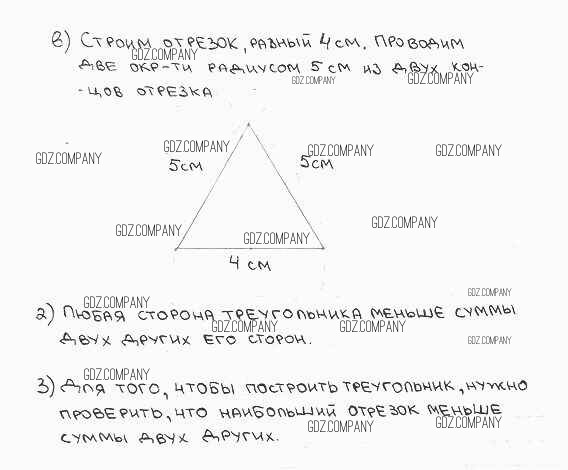 в) Строим отрезок, равный 4 см. Проводим
GDZ.COMPANY
две окр-ти радиусом 5 см из двух кон-
GDZ.COMPANY
GDZ.COMPANY
-цов отрезка
GDZ.COMPANY
GDZ.COMPANY
GDZ.COMPANY
GDZ.COMPANY
5 см
5 см
GDZ.COMPANY
GDZ.COMPANY
GDZ.COMPANY
4 см
GDZ.COMPANY
GDZ.COMPANY
2) Любая сторона треугольника меньше суммы
GDZ.COMPANY
GDZ.COMPANY
двух других его сторон.
GDZ.COMPANY
GDZ.COMPANY
3) Для того, чтобы построить треугольник, нужно
проверить, что наибольший отрезок меньше
GDZ.COMPANY
GDZ.COMPANY
суммы двух других.